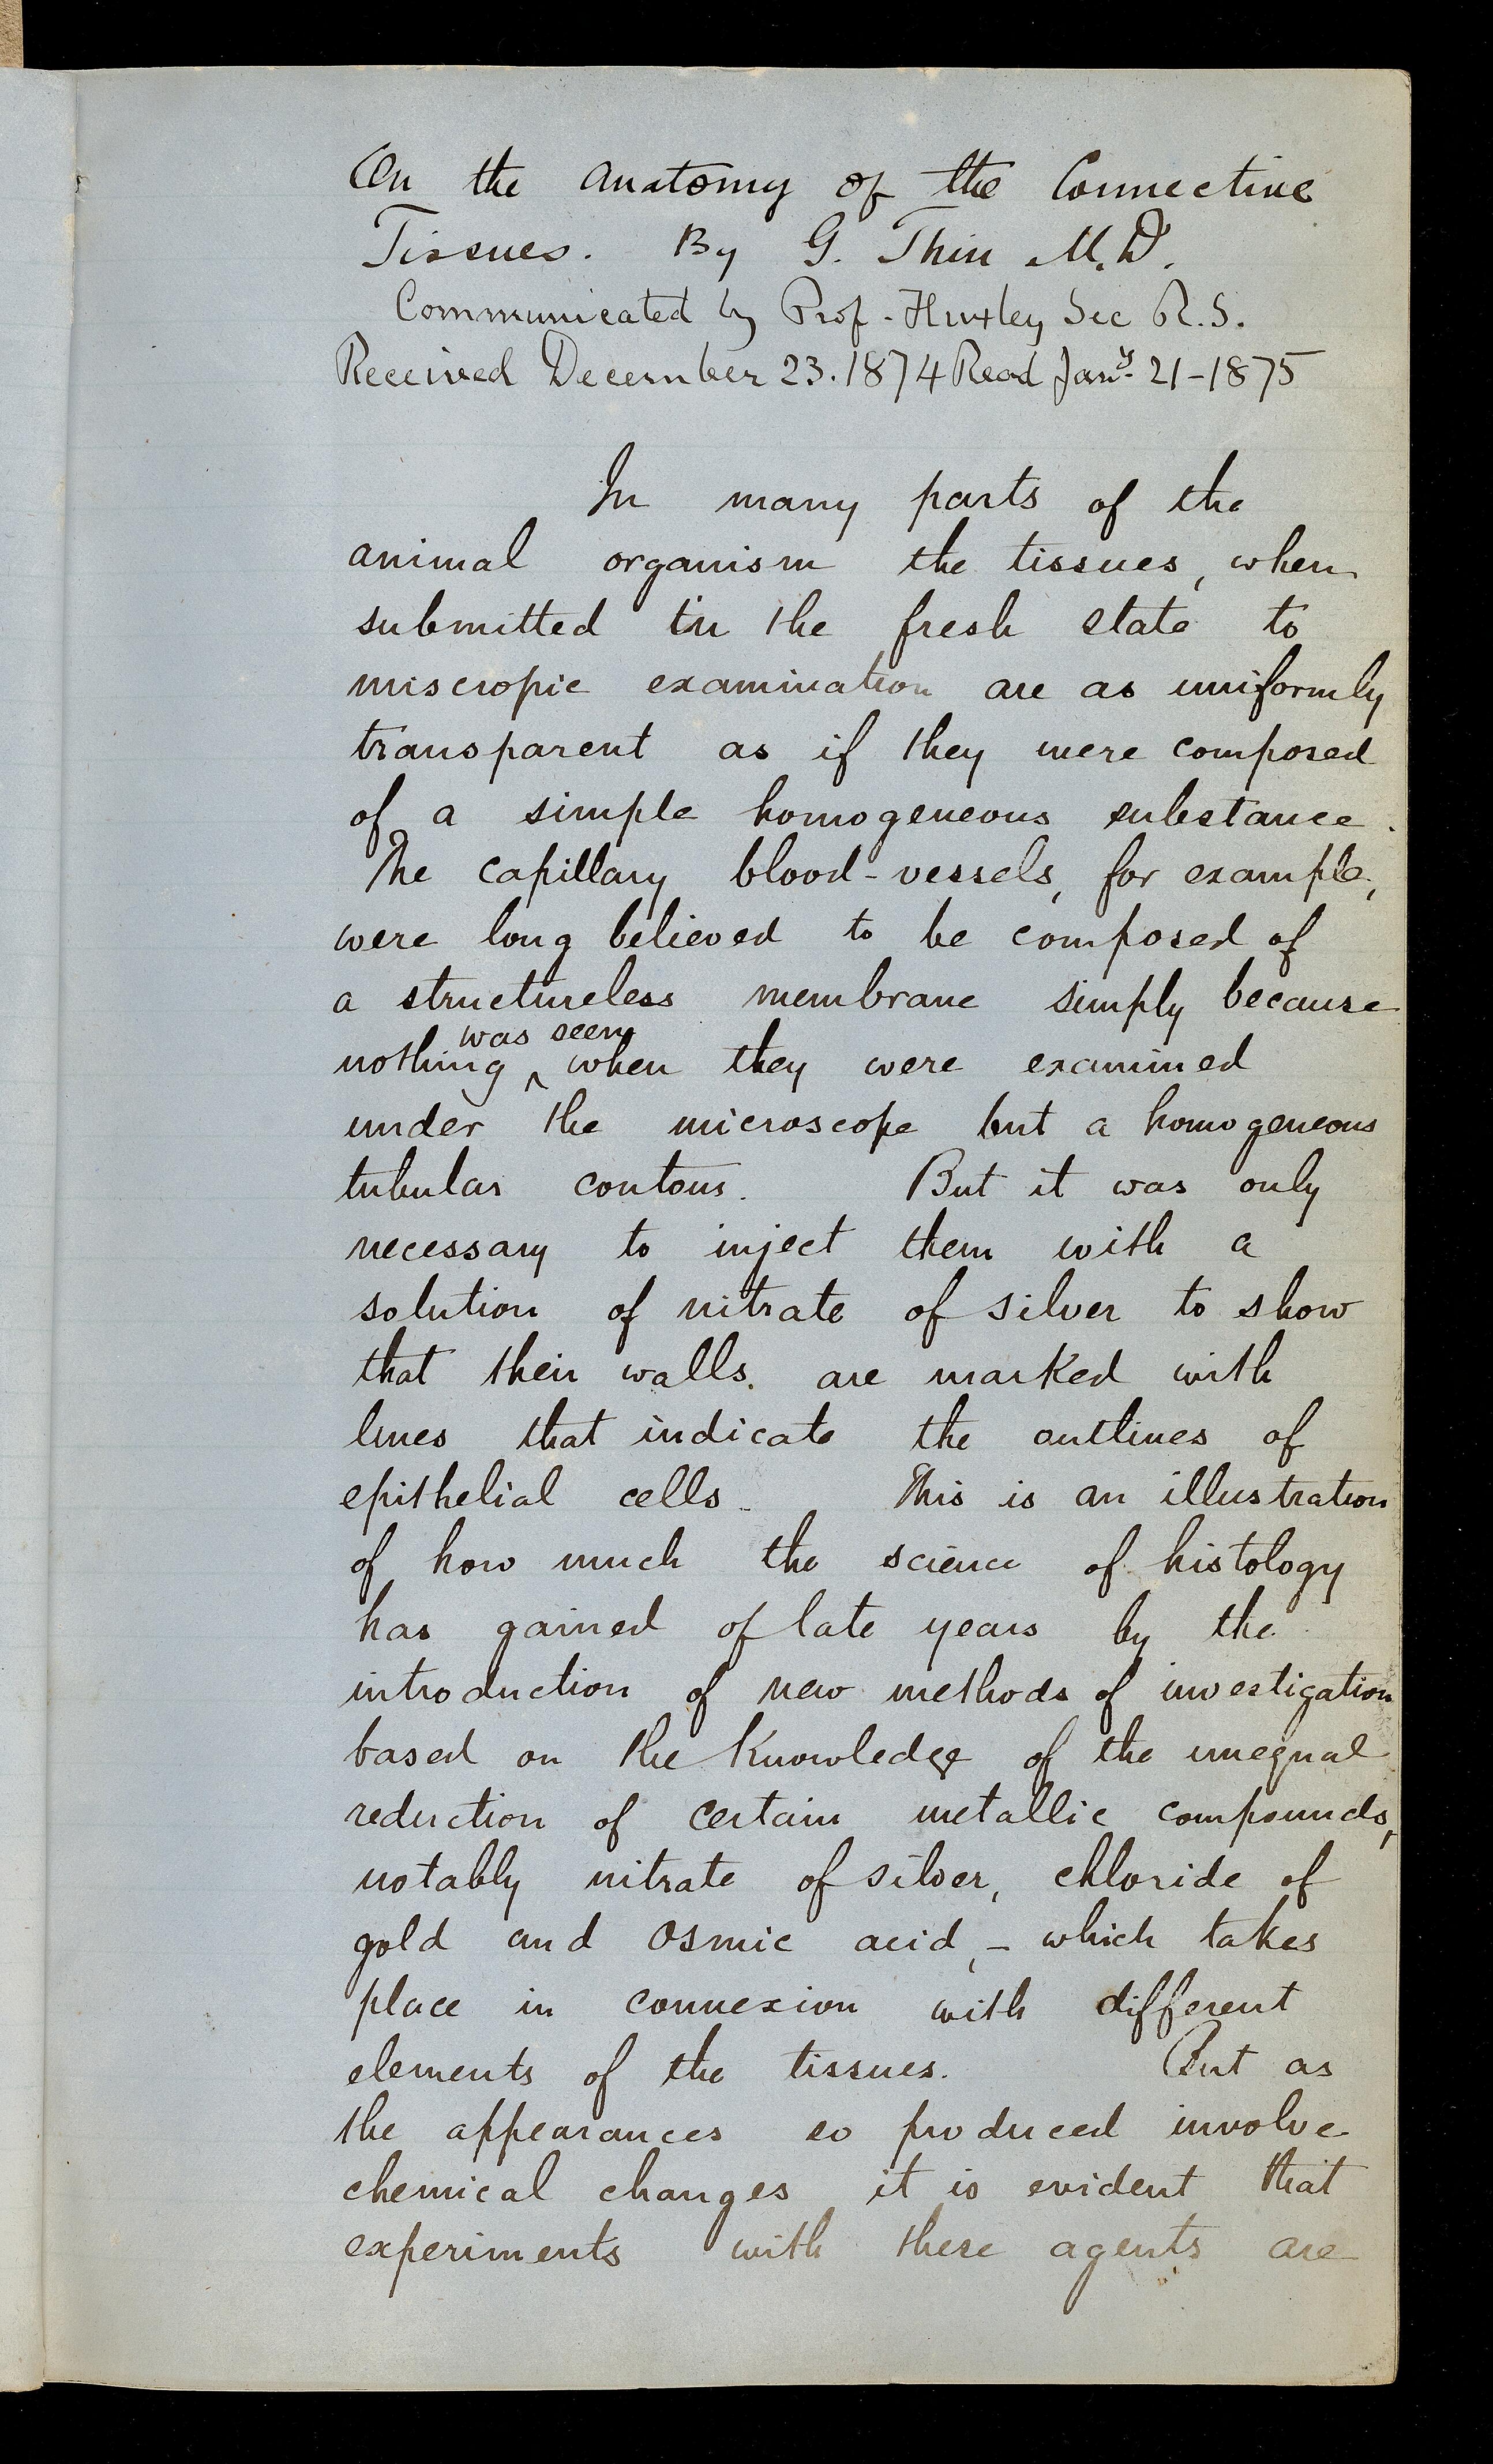 On the anatomy of the Connective
Tissues. By G. Thin M.D.
Communicated by Prof. Huxley Sec R.S.
Received December 23. 1874 Read Jany. 21-1875
In many parts of the
animal organism the tissues, when
submitted in the fresh state to
miscropic examination are as uniformly
transparent as if they were composed
of a simple homogeneous substance.
The capillary blood-vessels, for example,
were long believed to be composed of
a structureless membrane simply because
was seen
nothing ^ when they were examined
under the microscope but a homogeneous
tubular contour. But it was only
necessary to inject them with a
solution of nitrate of silver to show
that their walls. are marked with
lines that indicate the outlines of
epithelial cells. This is an illustration
of how much the science of histology
has gained of late years by the
introduction of new methods of investigation
based on the Knowledge of the unequal
reduction of certain metallic compounds,
notably nitrate of silver, chloride of
gold and osmic acid, - which takes
place in connexion with different
elements of the tissues. But as
the appearances so produced involve
chemical changes it is evident that
experiments with these agents are